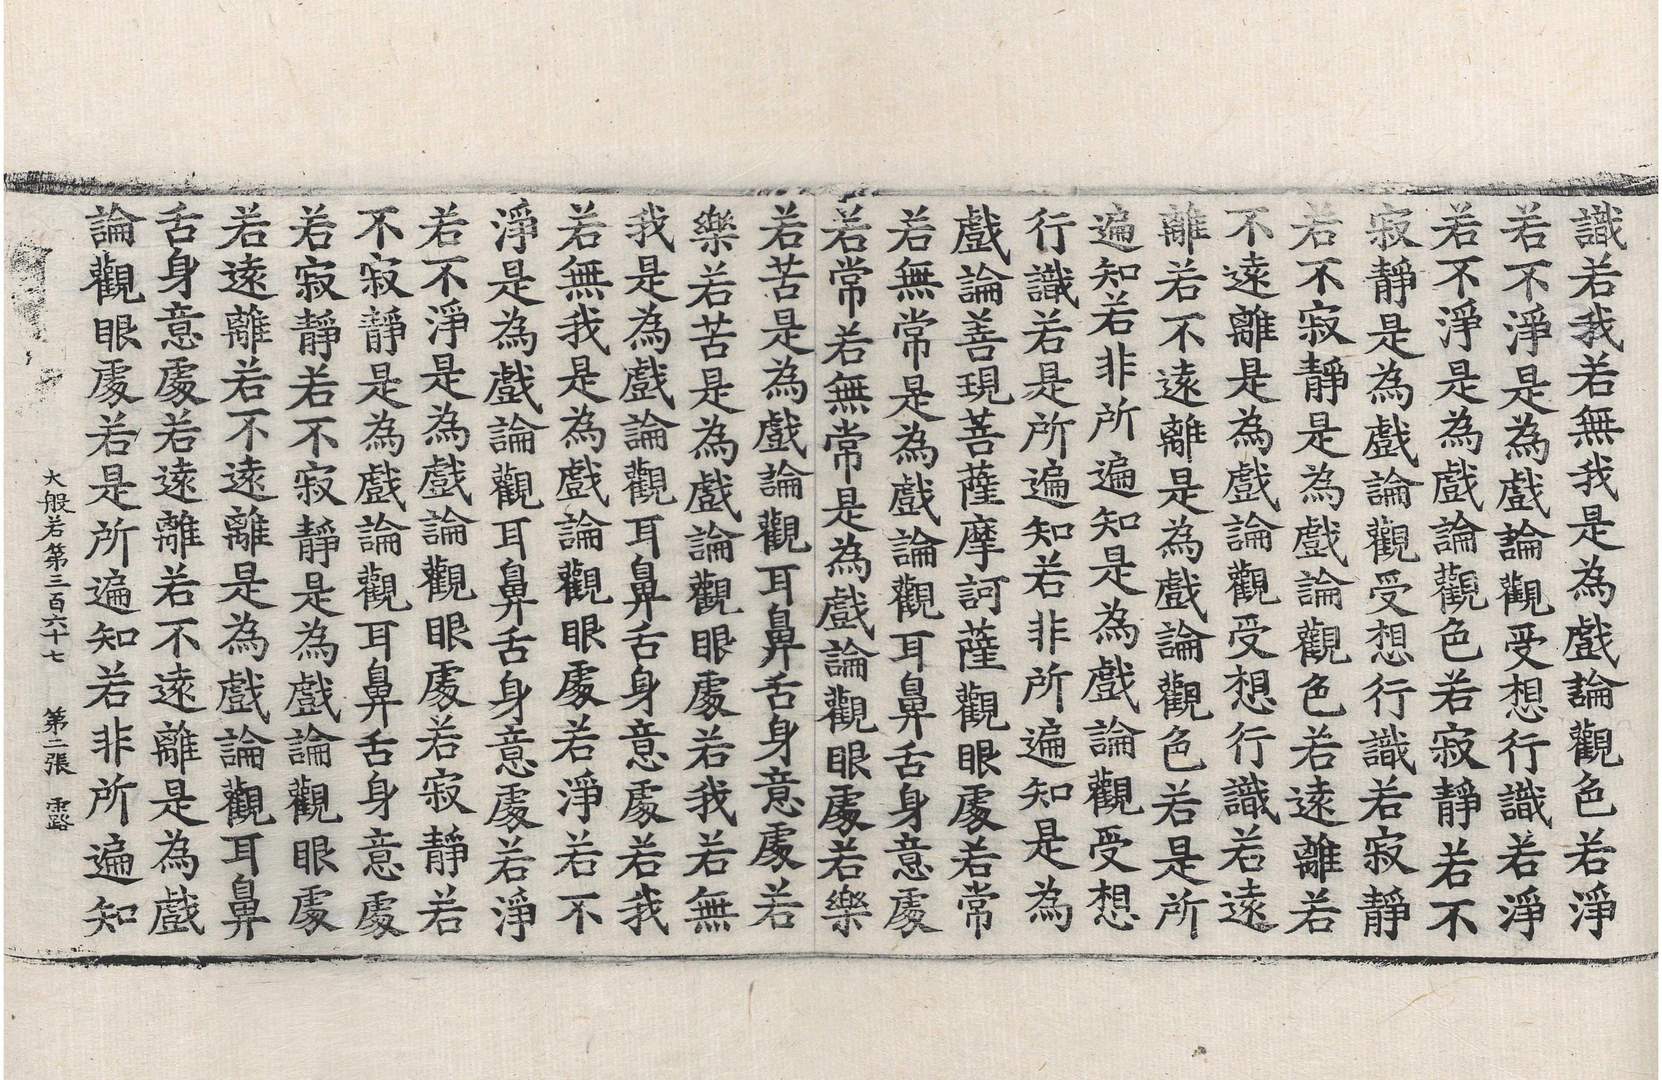 識若我若無我是為戲論觀色若淨
若不淨是為戲論觀受想行識若淨
若不淨是為戲論觀色若寂靜若不
寂靜是為戲論觀受想行識若寂靜
若不寂靜是為戲論觀色若遠離若
不遠離是為戲論觀受想行識若遠
離若不遠離是為戲論觀色若是所
遍知若非所遍知是為戲論觀受想
行識若是所遍知若非所遍知是為
戲論善現菩薩摩訶薩觀眼處若常
若無常是為戲論觀耳鼻舌身意處
若常若無常是為戲論觀眼處若樂
若苦是為戲論觀耳鼻舌身意處若
樂若苦是為戲論觀眼處若我若無
我是為戲論觀耳鼻舌身意處若我
若無我是為戲論觀眼處若淨若不
淨是為戲論觀耳鼻舌身意處若淨
若不淨是為戲論觀眼處若寂靜若
不寂靜是為戲論觀耳鼻舌身意處
若寂靜若不寂靜是為戲論觀眼處
若遠離若不遠離是為戲論觀耳鼻
舌身意處若遠離若不遠離是為戲
論觀眼處若是所遍知若非所遍知
大般若第三百六十七 第二張 露